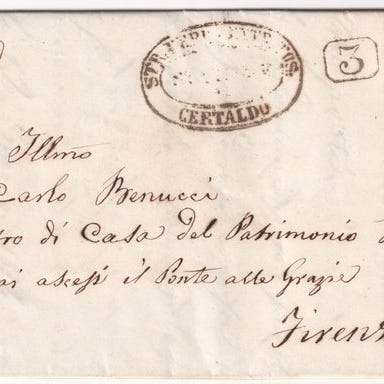 STR. FERR. CENTR. TOS.
CERTALDO
3
Illmo
Carlo Benucci
tro di Casa del Patrimonio
il Ponte alle Grazie
Firenz